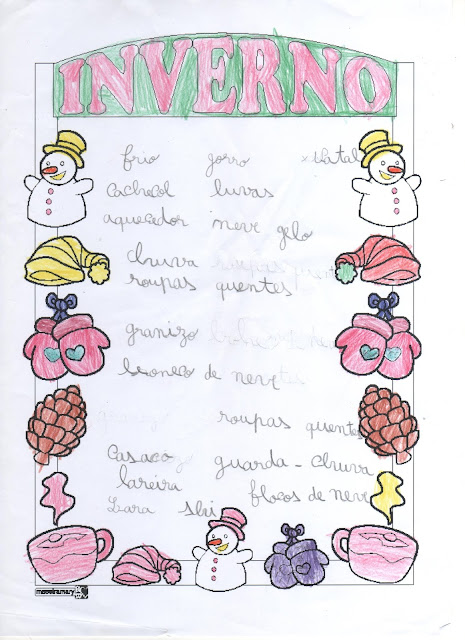 INVERNO
frio gorro xNatal
cachecol luvas
aquecador neve gelo
chuva
roupas quentes
granizo
boneco de neve
roupas quentes
Casaco guarda-chuva
lareira flocos de neve
Lara